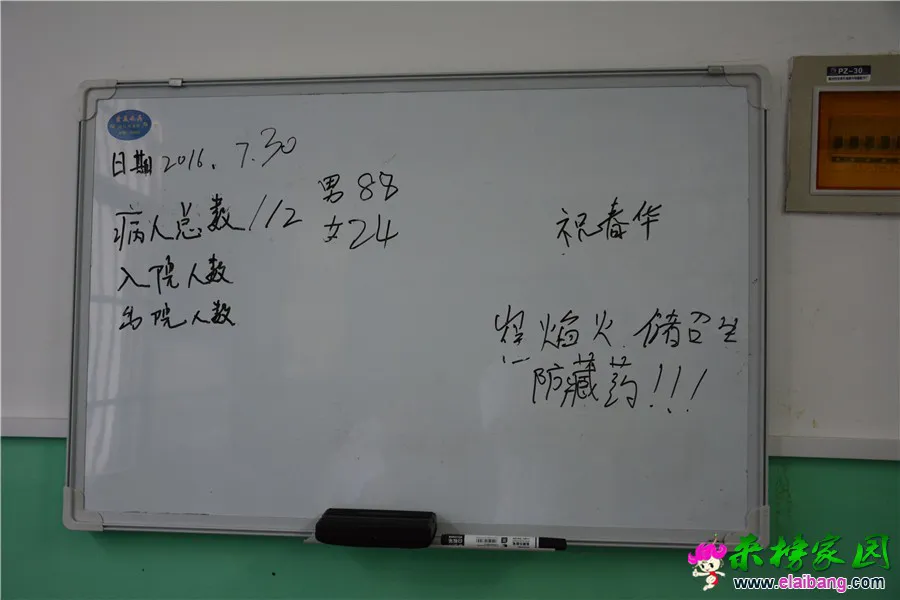 日期 2016. 7.30
病人总数 112 男 88
女 24
入院人数
出院人数
祝春华
焰火 储召生
防藏药!!!
PZ-30
来榜家园
www.elaibang.com